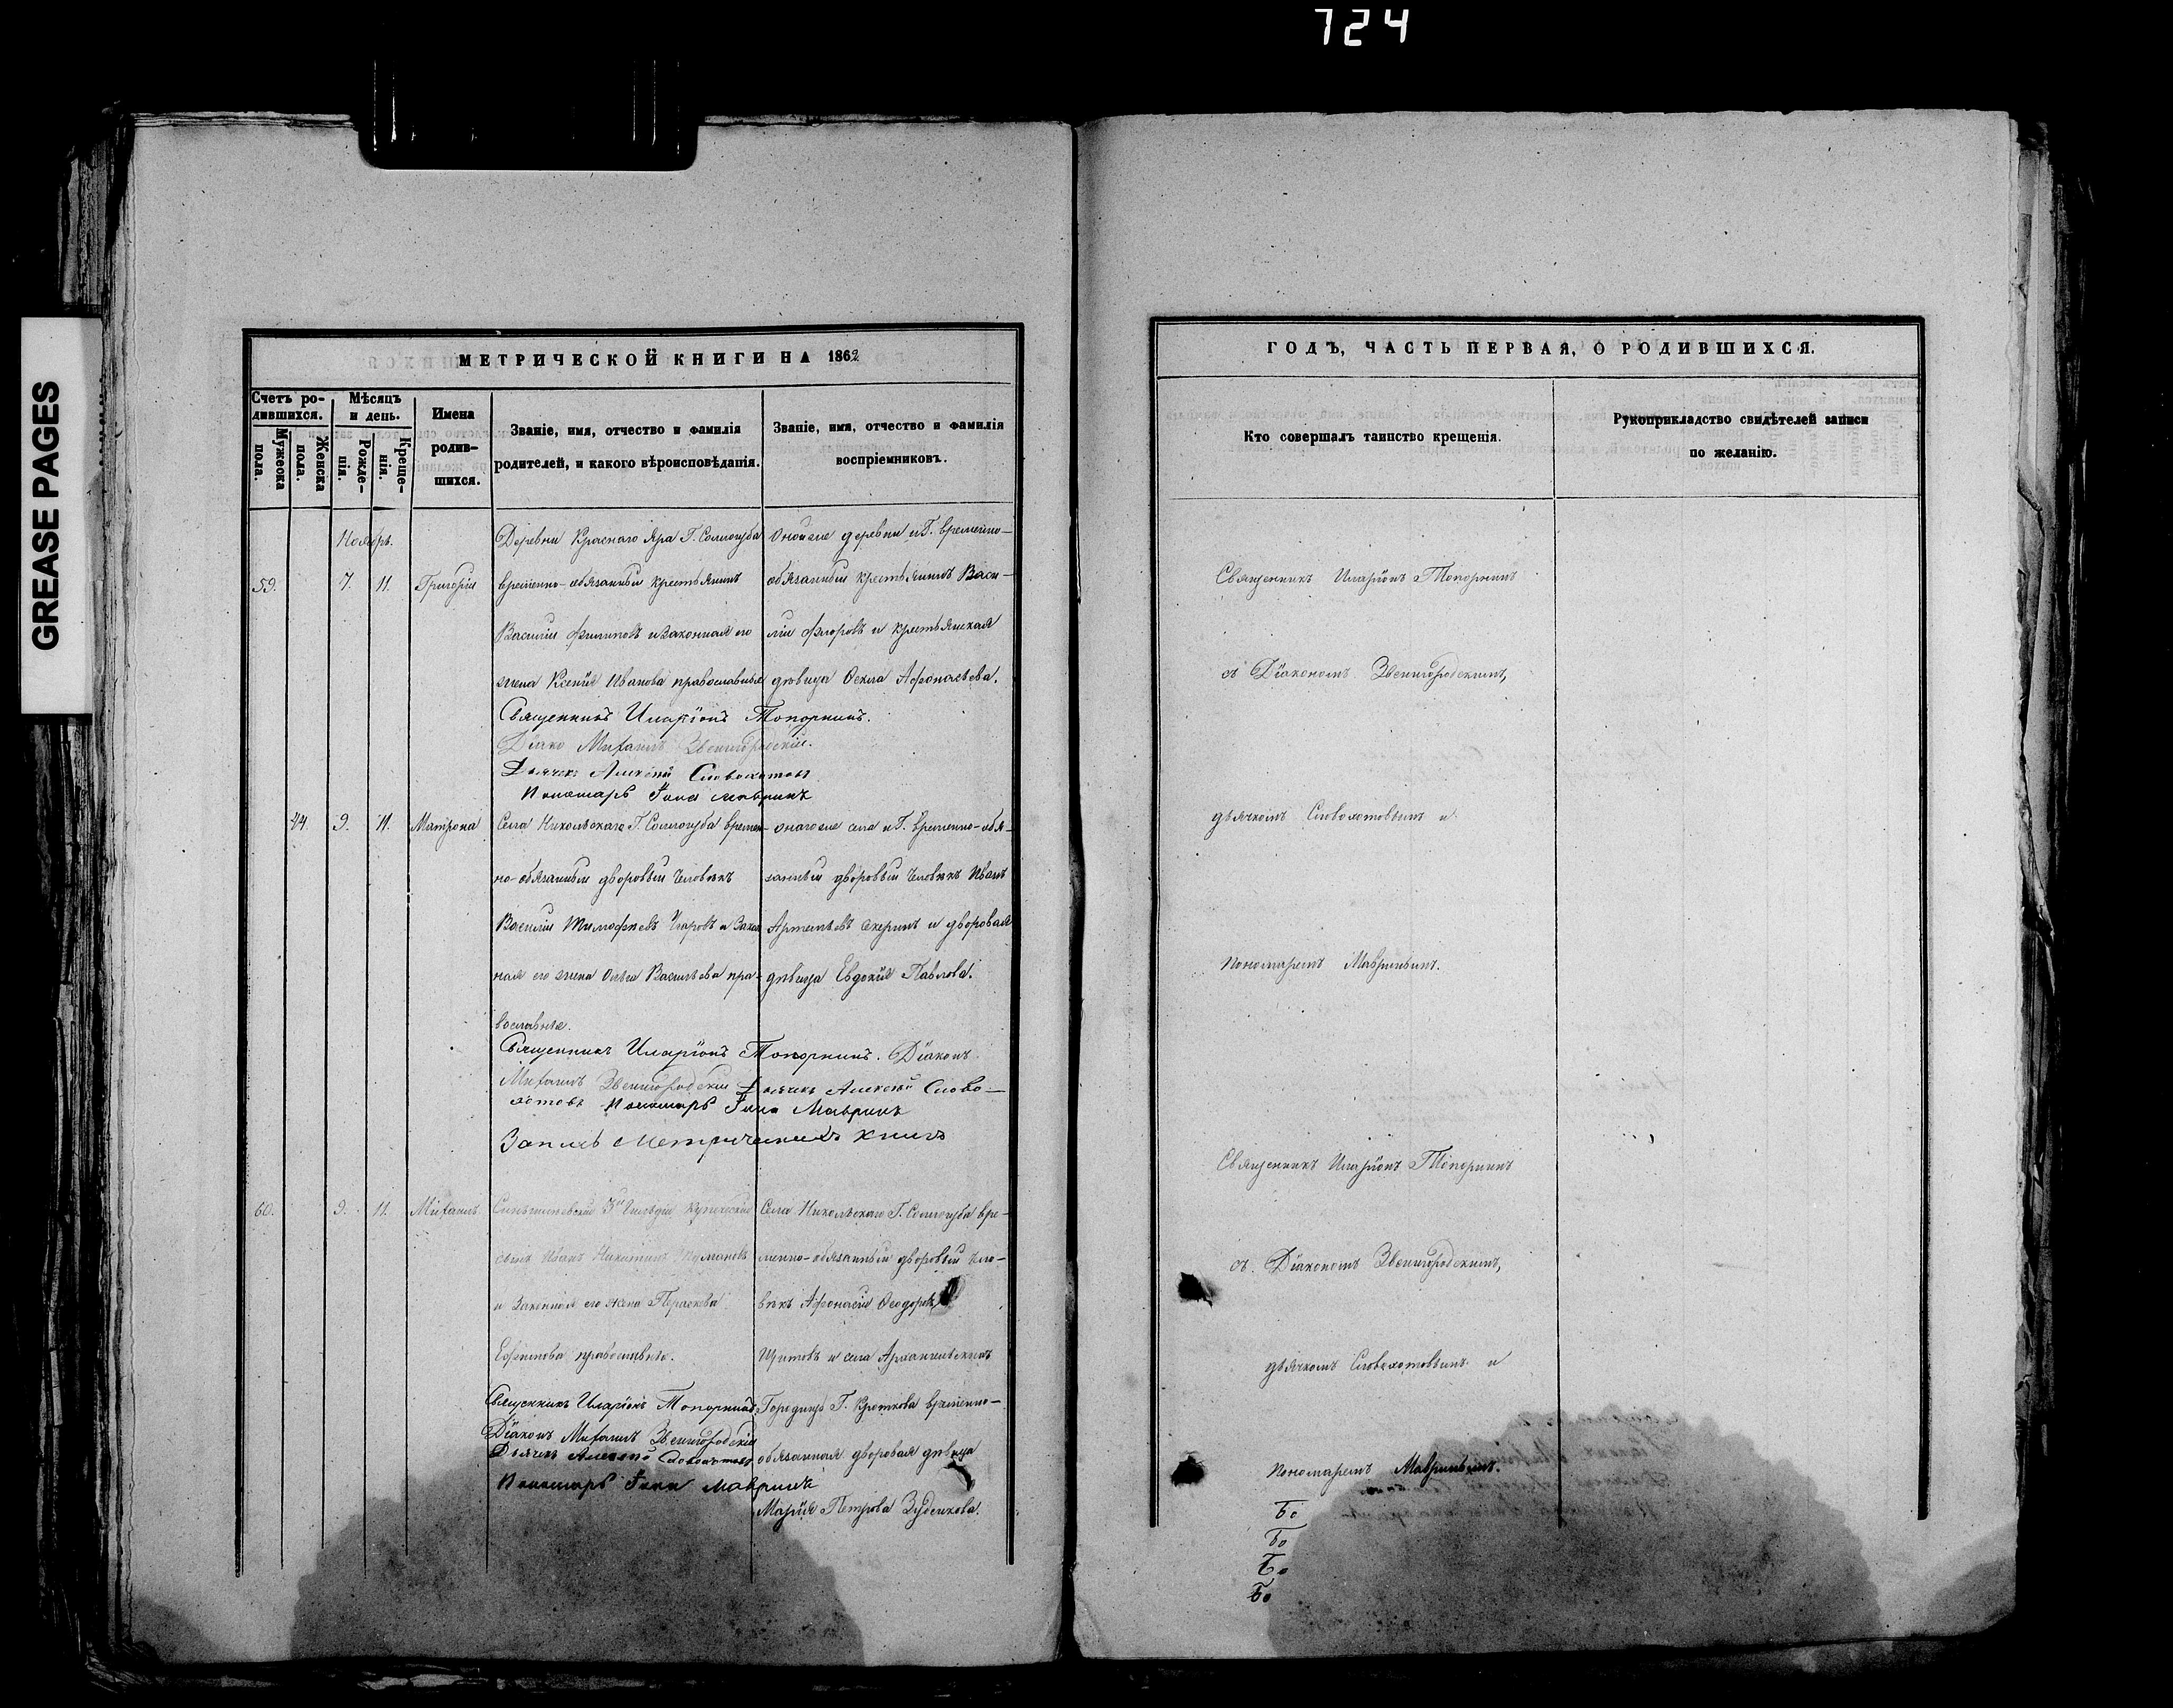 724
GREASE PAGES
МЕТРИЧЕСКОЙ КНИГИ НА 1862
Счетъ ро-
дившихся.
Мѣсяцъ
и день.
Имена
родив-
шихся.
Мужеска
пола.
Женска
пола.
Рожде-
нія.
Креще-
нія.
Званіе, имя, отчество и фамилія
родителей, и какого вѣроисповѣданія.
Званіе, имя, отчество и фамилія
воспріемниковъ.
Ноябрь.
59. 7. 11. Григорій
Деревни Краснаго Яра Г. Соллогуба
временно-обязанный крестьянинъ
Василій Филиповъ и законная его
жена Ксенія Иванова православные
Священникъ Иларіонъ Топорнинъ.
Діако Михаилъ Звенигородскій.
Дьячекъ Алексѣй Словохотовъ
Пономарь Мавринъ
Оной же деревни и Г. временно-
обязанный крестьянинъ Васи-
лій Флоровъ и крестьянская
дѣвица Ѳекла Афонасьева.
44. 9. 11. Матрона
Села Никольскаго Г. Соллогуба времен-
но-обязанный дворовый человѣкъ
Василій Тимофѣевъ и закон
ная его жена Васильева пра-
вославные.
Священникъ Иларіонъ Топорнинъ. Діаконъ
Михаилъ Звенигородскій Дьячекъ Алексѣй Слово-
хотовъ Пономарь Мавринъ
Запись Метрическихъ книгъ
онаго же села и Г. временно-обя-
занный дворовый человѣкъ Иванъ
Артемьевъ и дворовая
дѣвица Евдокія Павлова.
60. 9. 11. Михаилъ
3й Гильдіи Купеческій
сынъ Иванъ Никитинъ
и законная его жена Параскева
Ефимова православные.
Священникъ Иларіонъ Топорнинъ
Діаконъ Михаилъ Звенигородскій
Дьячекъ Алексѣй Словохотовъ
Пономарь Мавринъ
Села Никольскаго Г. Соллогуба вре-
менно-обязанный дворовый чело-
вѣкъ Афонасій Ѳеодоровъ
и села Архангельскаго
Городище Г. Кроткова временно-
обязанная дворовая дѣвица
Марія Петрова
ГОДЪ, ЧАСТЬ ПЕРВАЯ, О РОДИВШИХСЯ.
Кто совершалъ таинство крещенія.
Рукоприкладство свидѣтелей записи
по желанію.
Священникъ Иларіонъ Топорнинъ
съ Діакономъ Звенигородскимъ,
дьячкомъ Словохотовымъ и
Пономаремъ Мавринымъ.
Священникъ Иларіонъ Топорнинъ
съ Діакономъ Звенигородскимъ,
дьячкомъ Словохотовымъ и
Пономаремъ Мавринымъ.